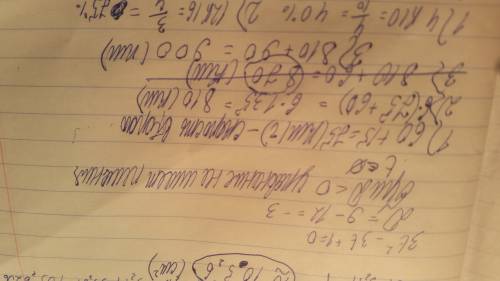 3t² - 3t + 1 = 0
D = 9 - 12 = -3
если D < 0 уравнение не имеет решения
1) 60 + 15 = 75 (км/ч) - скорость второго
2) 6(75 + 60) = 6·135 = 810 (км)
3) 810 + 60 = 870 (км)
3) 810 + 90 = 900 (км)
1) 4 и 10 = 4/10 = 40% 2) 12 и 16 = 3/4 = 75%